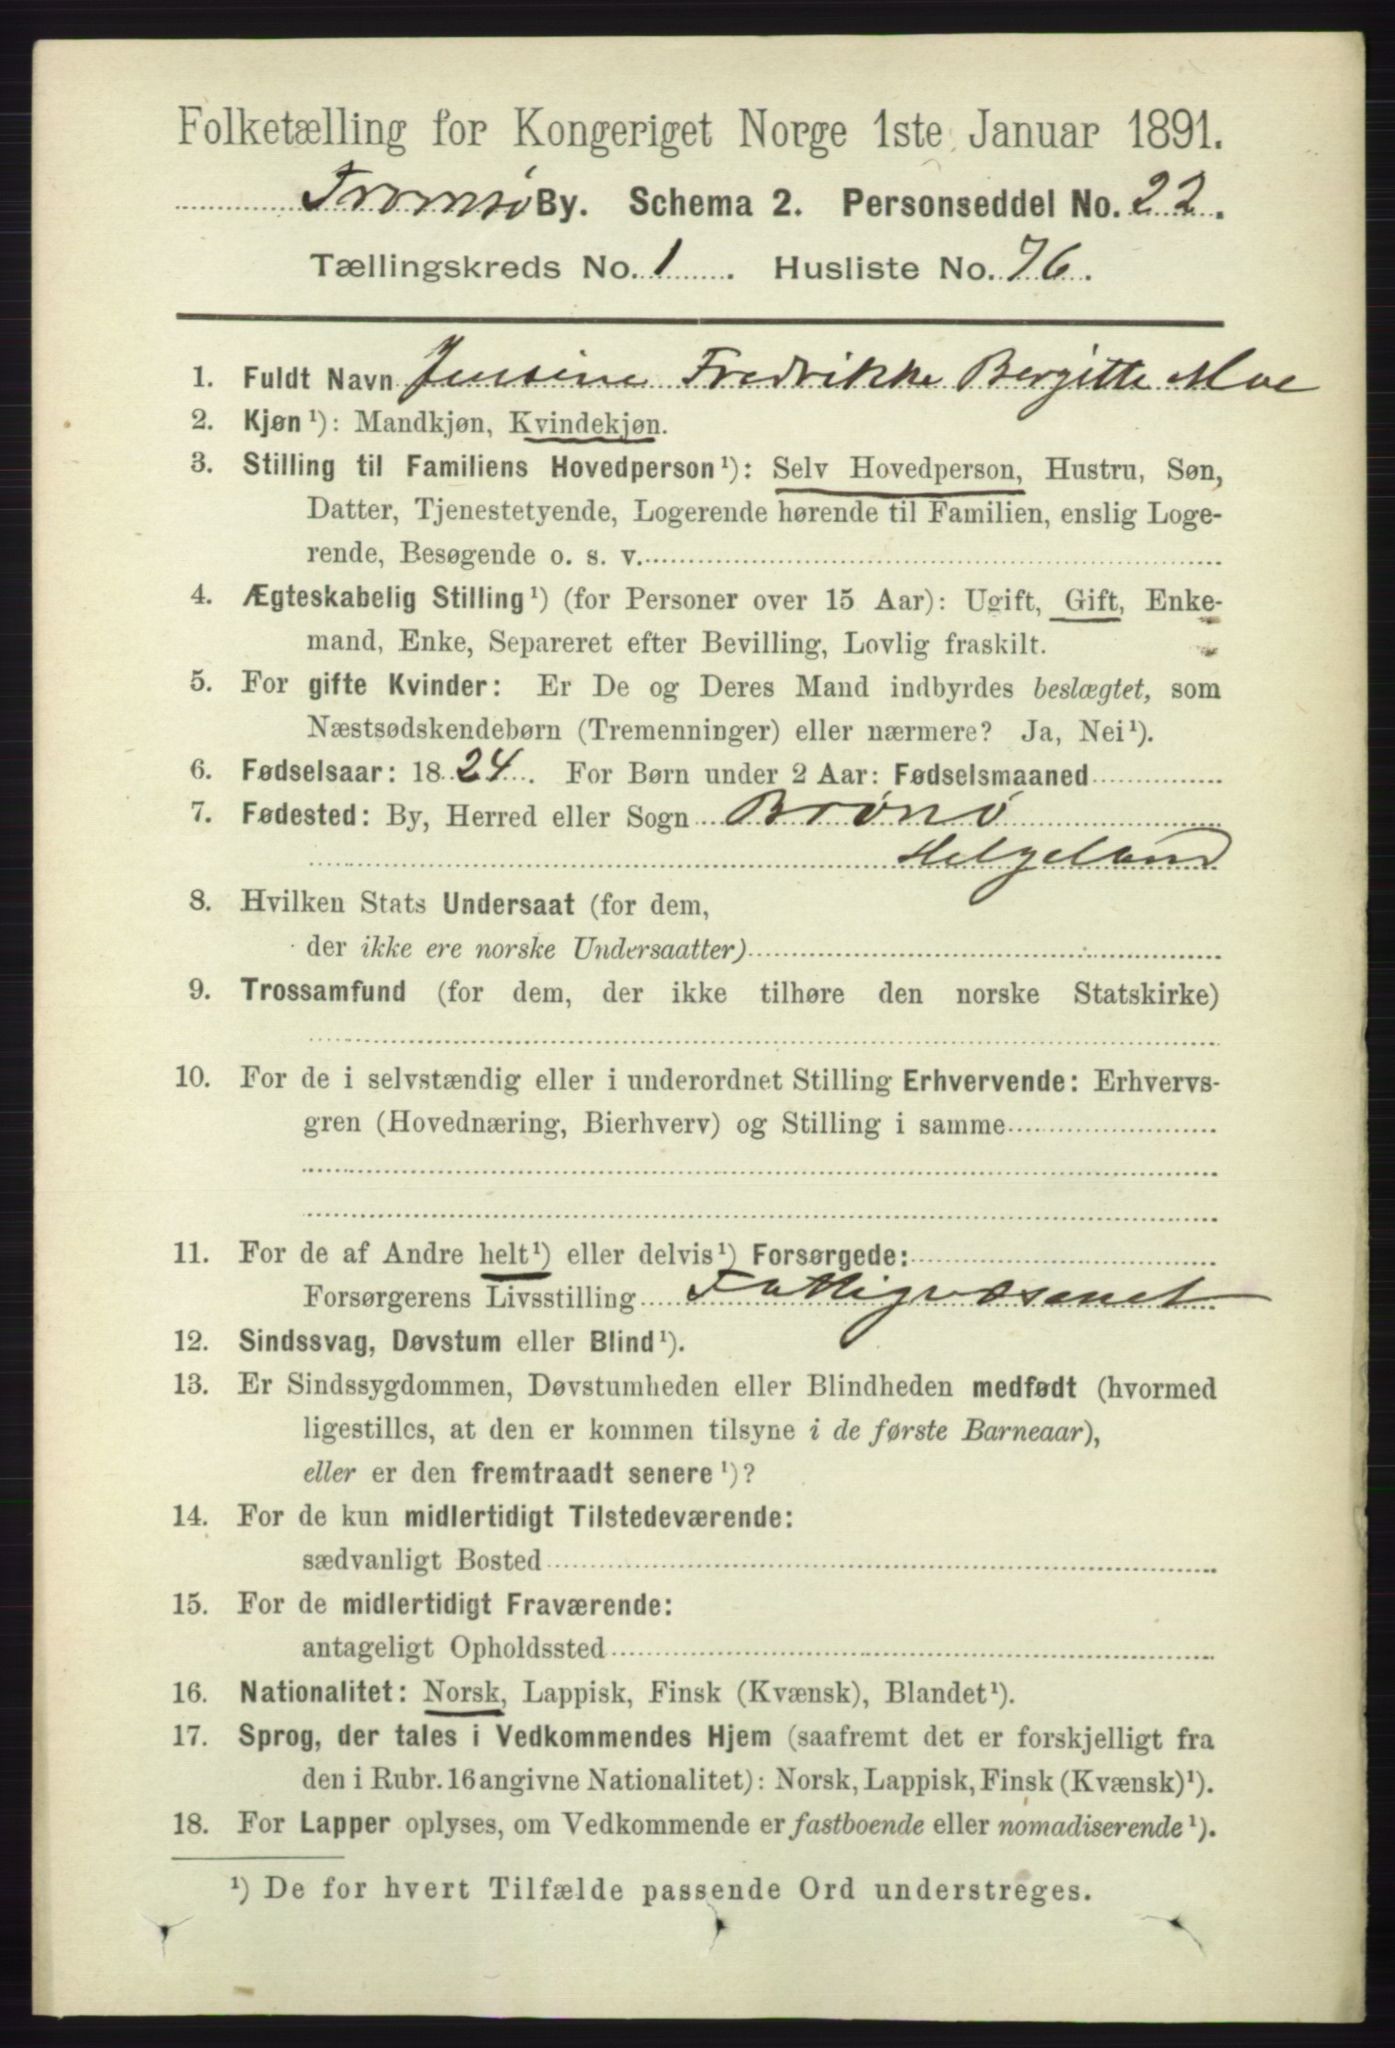 Folketælling for Kongeriget Norge 1ste Januar 1891.
Tromsø By. Schema 2. Personseddel No. 22.
Tællingskreds No. 1. Husliste No. 76.
1. Fuldt Navn Jensine Fredrikke Bergitte Moe
2. Kjøn¹): Mandkjøn, Kvindekjøn.
3. Stilling til Familiens Hovedperson¹): Selv Hovedperson, Hustru, Søn,
Datter, Tjenestetyende, Logerende hørende til Familien, enslig Loge-
rende, Besøgende o. s. v.
4. Ægteskabelig Stilling¹) (for Personer over 15 Aar): Ugift, Gift, Enke-
mand, Enke, Separeret efter Bevilling, Lovlig fraskilt.
5. For gifte Kvinder: Er De og Deres Mand indbyrdes beslægtet, som
Næstsødskendebørn (Tremenninger) eller nærmere? Ja, Nei¹).
6. Fødselsaar: 1824. For Børn under 2 Aar: Fødselsmaaned
7. Fødested: By, Herred eller Sogn Brønø
Helgeland
8. Hvilken Stats Undersaat (for dem,
der ikke ere norske Undersaatter)
9. Trossamfund (for dem, der ikke tilhøre den norske Statskirke)
10. For de i selvstændig eller i underordnet Stilling Erhvervende: Erhvervs-
gren (Hovednæring, Bierhverv) og Stilling i samme
11. For de af Andre helt¹) eller delvis¹) Forsørgede:
Forsørgerens Livsstilling Fattigvæsenet
12. Sindssvag, Døvstum eller Blind¹).
13. Er Sindssygdommen, Døvstumheden eller Blindheden medfødt (hvormed
ligestilles, at den er kommen tilsyne i de første Barneaar),
eller er den fremtraadt senere¹)?
14. For de kun midlertidigt Tilstedeværende:
sædvanligt Bosted
15. For de midlertidigt Fraværende:
antageligt Opholdssted
16. Nationalitet: Norsk, Lappisk, Finsk (Kvænsk), Blandet¹).
17. Sprog, der tales i Vedkommendes Hjem (saafremt det er forskjelligt fra
den i Rubr. 16 angivne Nationalitet): Norsk, Lappisk, Finsk (Kvænsk)¹).
18. For Lapper oplyses, om Vedkommende er fastboende eller nomadiserende¹).
¹) De for hvert Tilfælde passende Ord understreges.